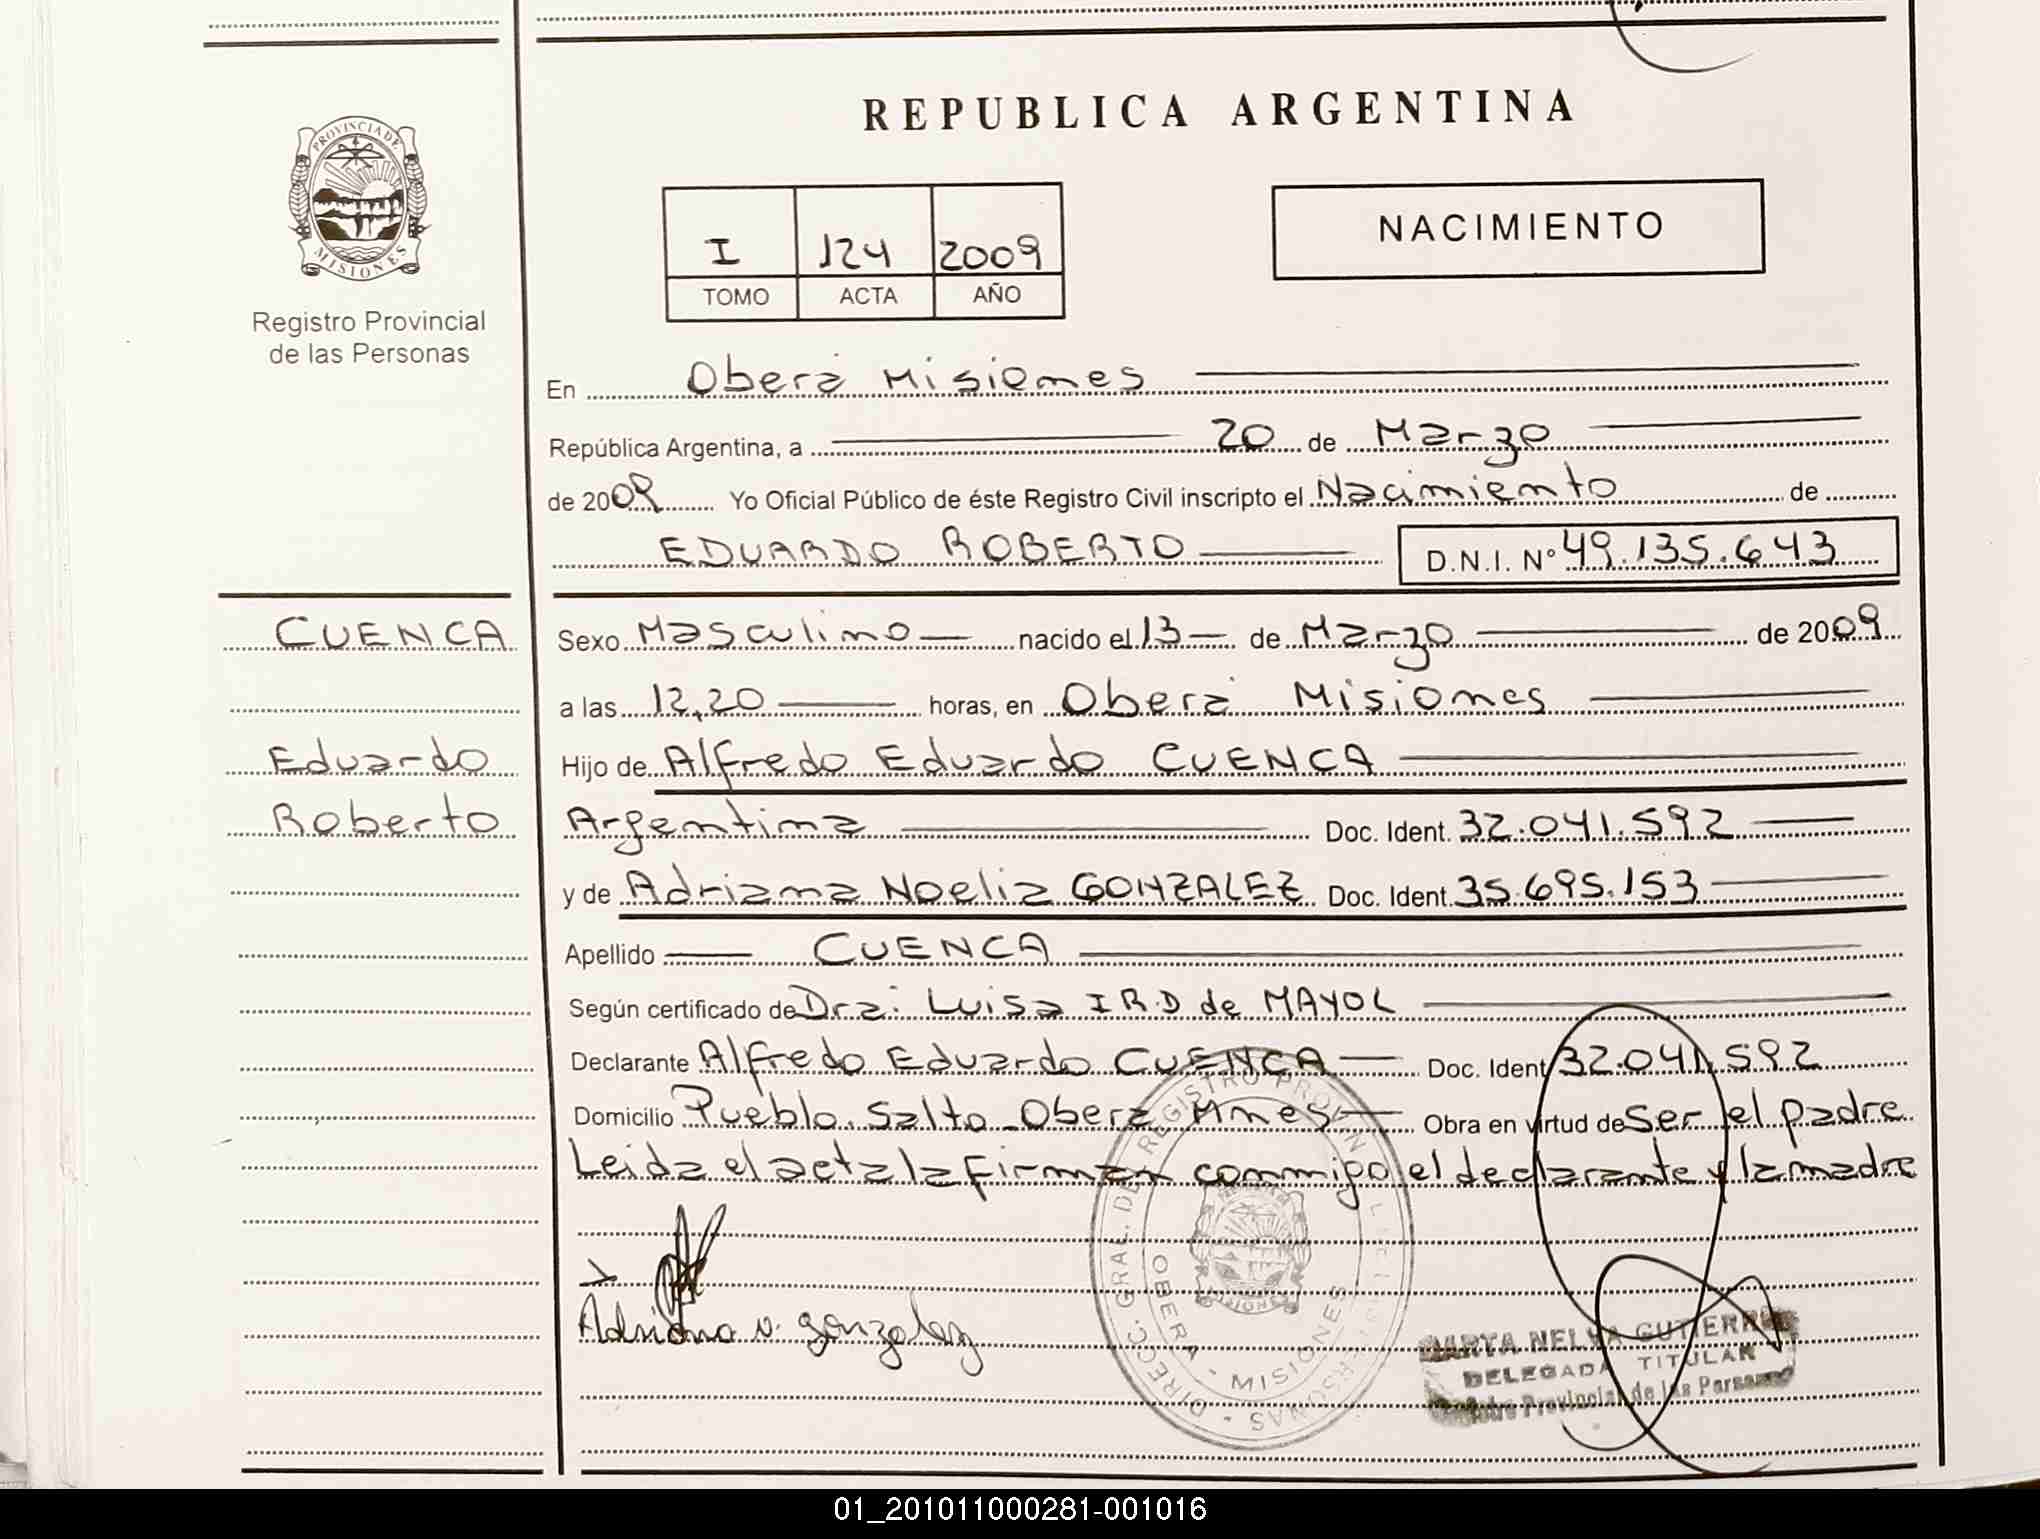 REPUBLICA ARGENTINA
PROVINCIA DE
MISIONES
Registro Provincial
de las Personas
I 124 2009
TOMO ACTA AÑO
NACIMIENTO
En Oberá Misiones
República Argentina, a 20 de Marzo
de 2009 Yo Oficial Público de éste Registro Civil inscripto el Nacimiento de
EDUARDO ROBERTO D.N.I. Nº 49.135.643
CUENCA
Eduardo
Roberto
Sexo Masculino nacido el 13 de Marzo de 2009
a las 12,20 horas, en Oberá Misiones
Hijo de Alfredo Eduardo CUENCA
Argentina Doc. Ident. 32.041.592
y de Adriana Noelia GONZALEZ Doc. Ident. 35.695.153
Apellido CUENCA
Según certificado de Dra: Luisa I R.D de MAYOL
Declarante Alfredo Eduardo CUENCA Doc. Ident 32.041.592
Domicilio Pueblo Salto Obera Mnes Obra en virtud de Ser el padre
Leida el acta la firman conmigo el declarante y la madre
Adriana N. Gonzalez
DIRECC. GRAL. DE REGISTRO PROVINCIAL DE LAS PERSONAS
OBERA - MISIONES
MISIONES
NELVA GUTIERREZ
DELEGADA TITULAR
Registro Provincial de las Personas
01_201011000281-001016